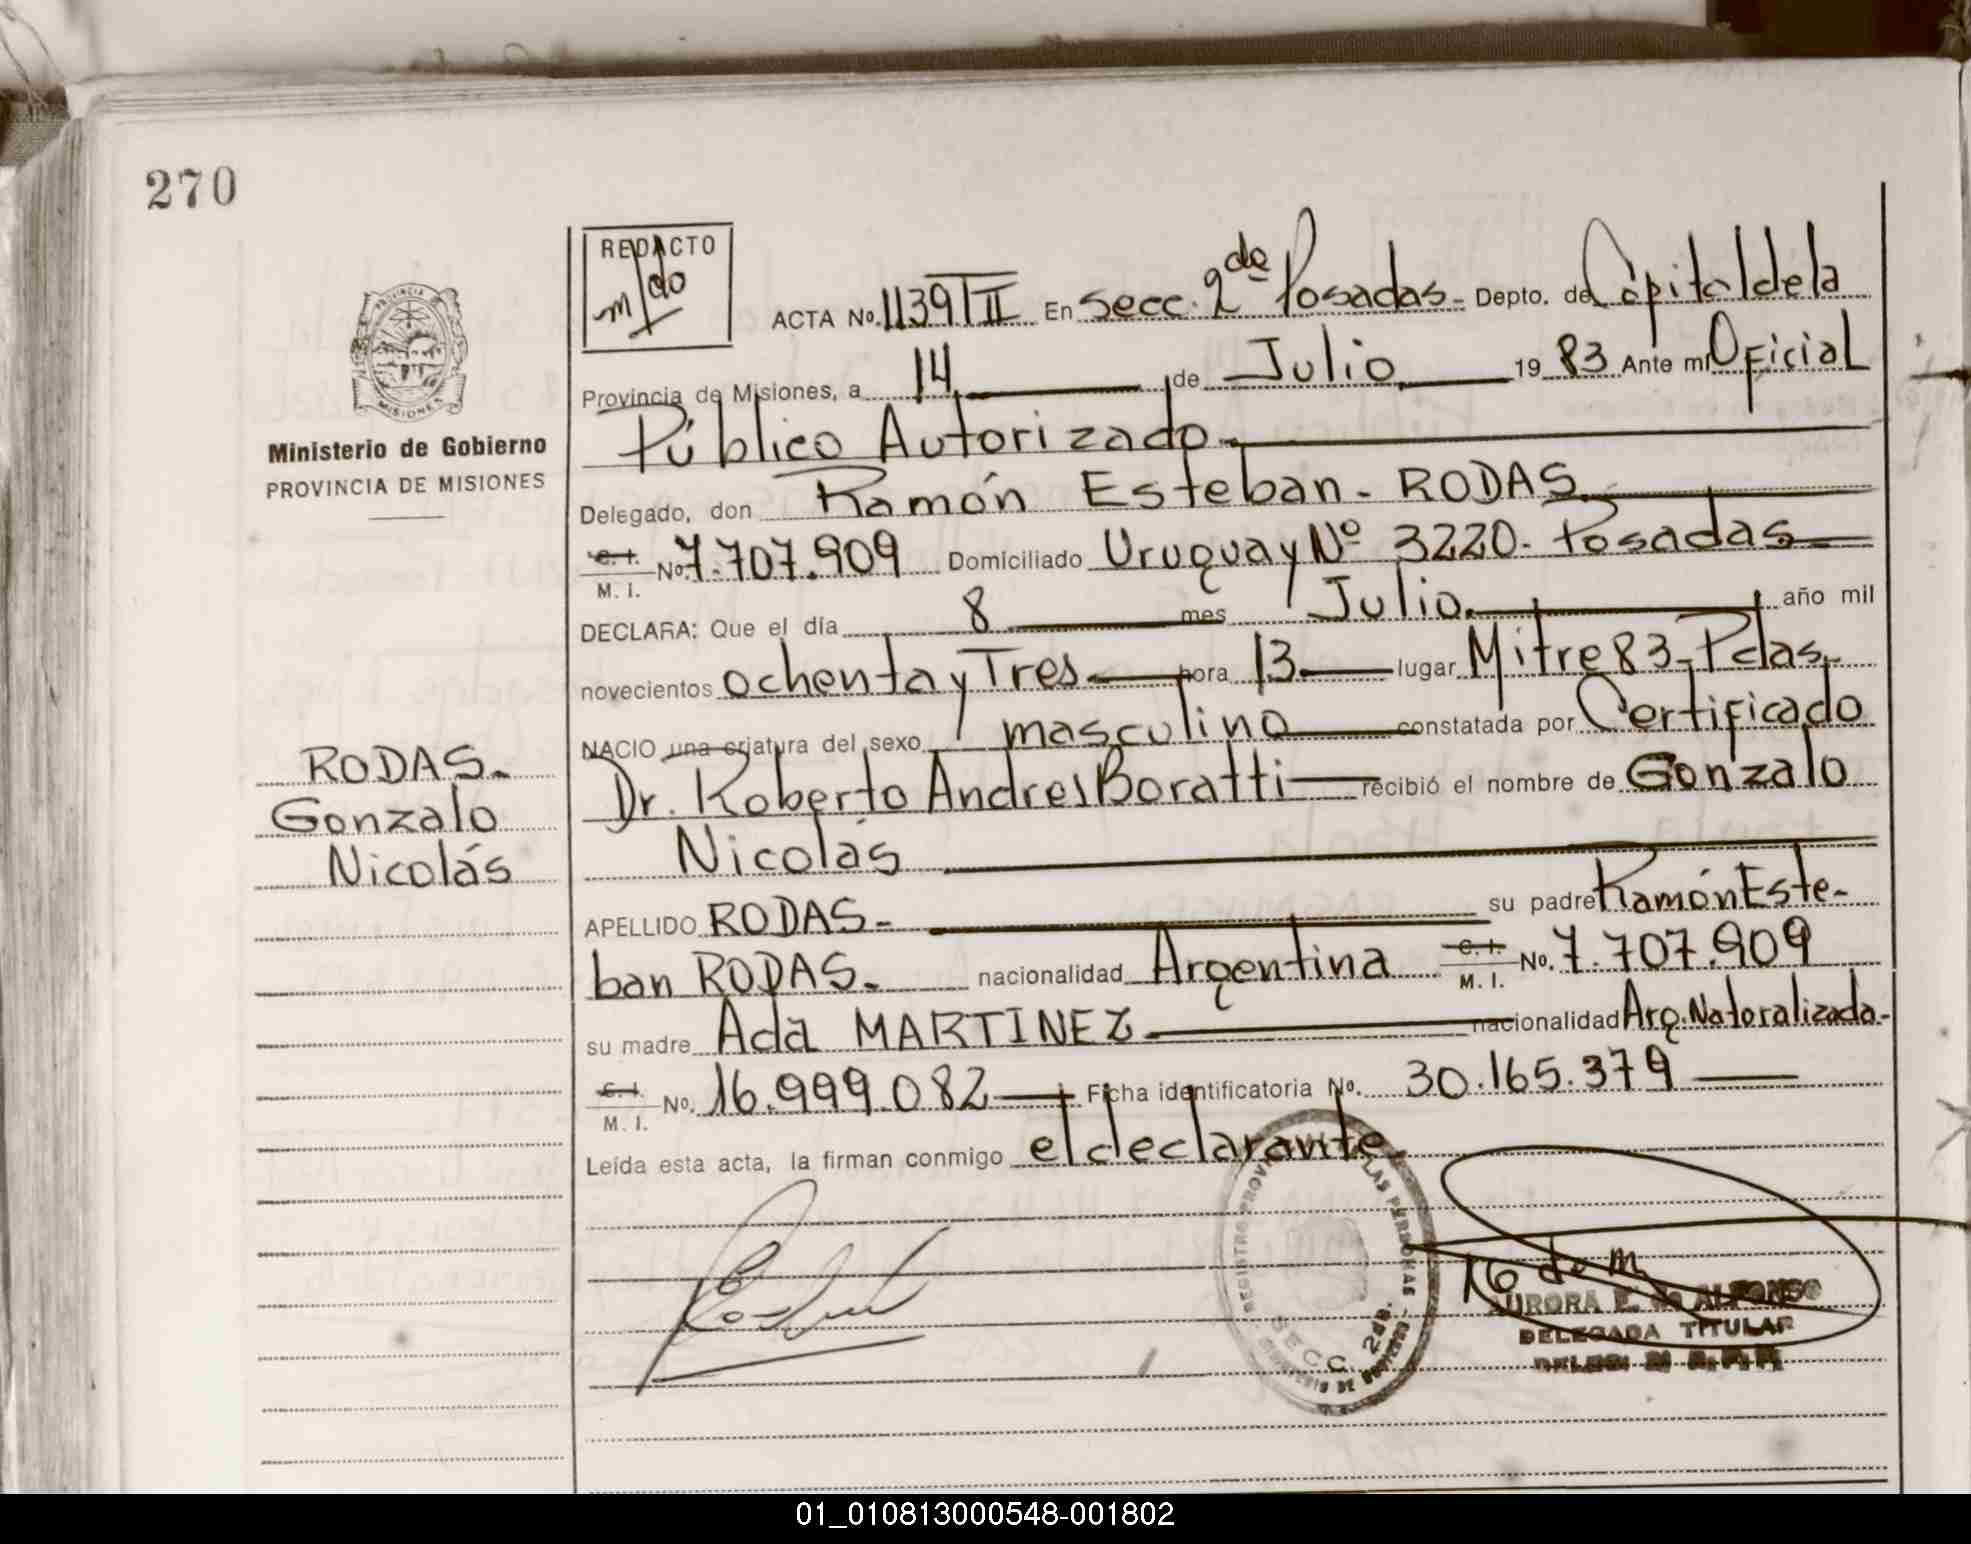 270
REDACTO
PROVINCIA
MISIONES
Ministerio de Gobierno
PROVINCIA DE MISIONES
ACTA No. 1139 TII En Secc. 2da Posadas- Depto. de Capital de la
Provincia de Misiones, a 14 de Julio 1983 Ante mí Oficial
Público Autorizado.
Delegado, don Ramón Esteban - RODAS
C. I.
M. I. No. 7.707.909 Domiciliado Uruguay Nº 3220 - Posadas
DECLARA: Que el día 8 mes Julio. año mil
novecientos ochenta y Tres hora 13 lugar Mitre 83 - Pdas,
NACIO una criatura del sexo masculino constatada por Certificado
Dr. Roberto Andres Boratti recibió el nombre de Gonzalo
Nicolás
APELLIDO RODAS - su padre Ramón Este-
ban RODAS. nacionalidad Argentina C. I. M. I. No. 7.707.909
su madre Ada MARTINEZ nacionalidad Arg. Naturalizada-
C. I.
M. I. No. 16.999.082 Ficha identificatoria No. 30.165.379
Leída esta acta, la firman conmigo el declarante.
RODAS.
Gonzalo
Nicolás
SECC. 2da
AURORA E. de ALFONSO
DELEGADA TITULAR
01_010813000548-001802